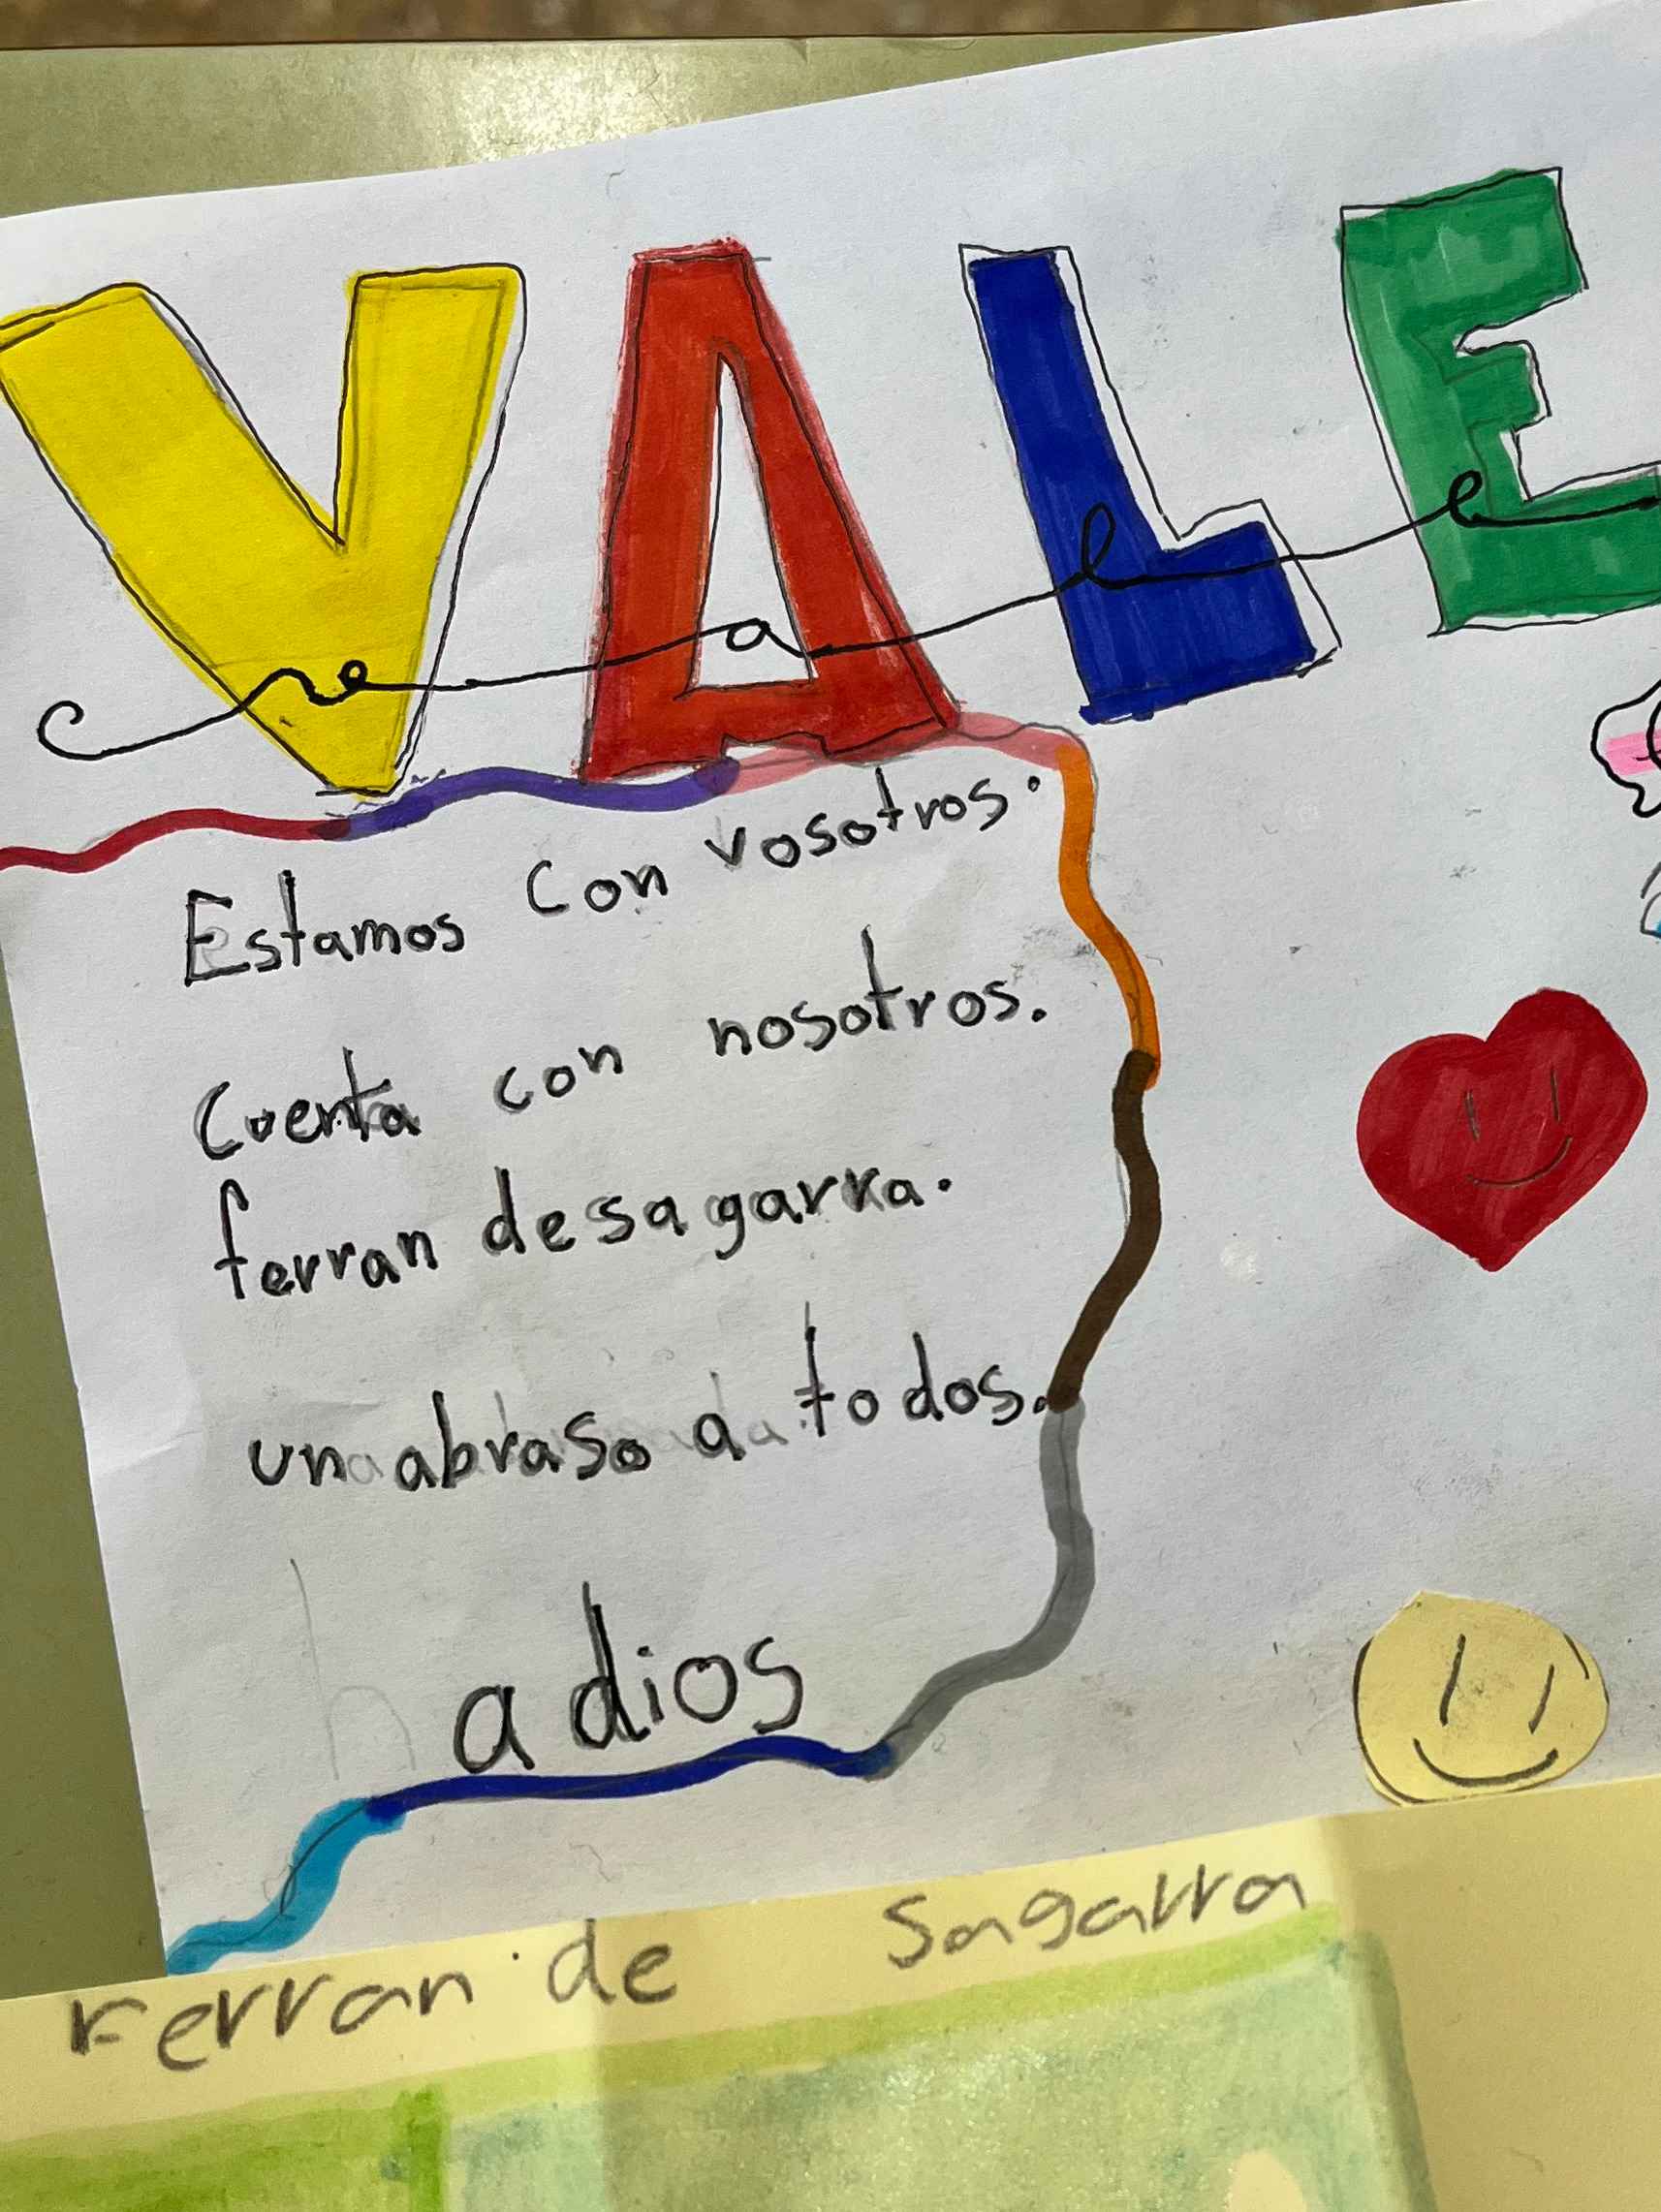 VALE
Estamos con vosotros.
Cuenta con nosotros.
ferran desagarra.
un abraso a todos.
adios
Ferran de Sagarra